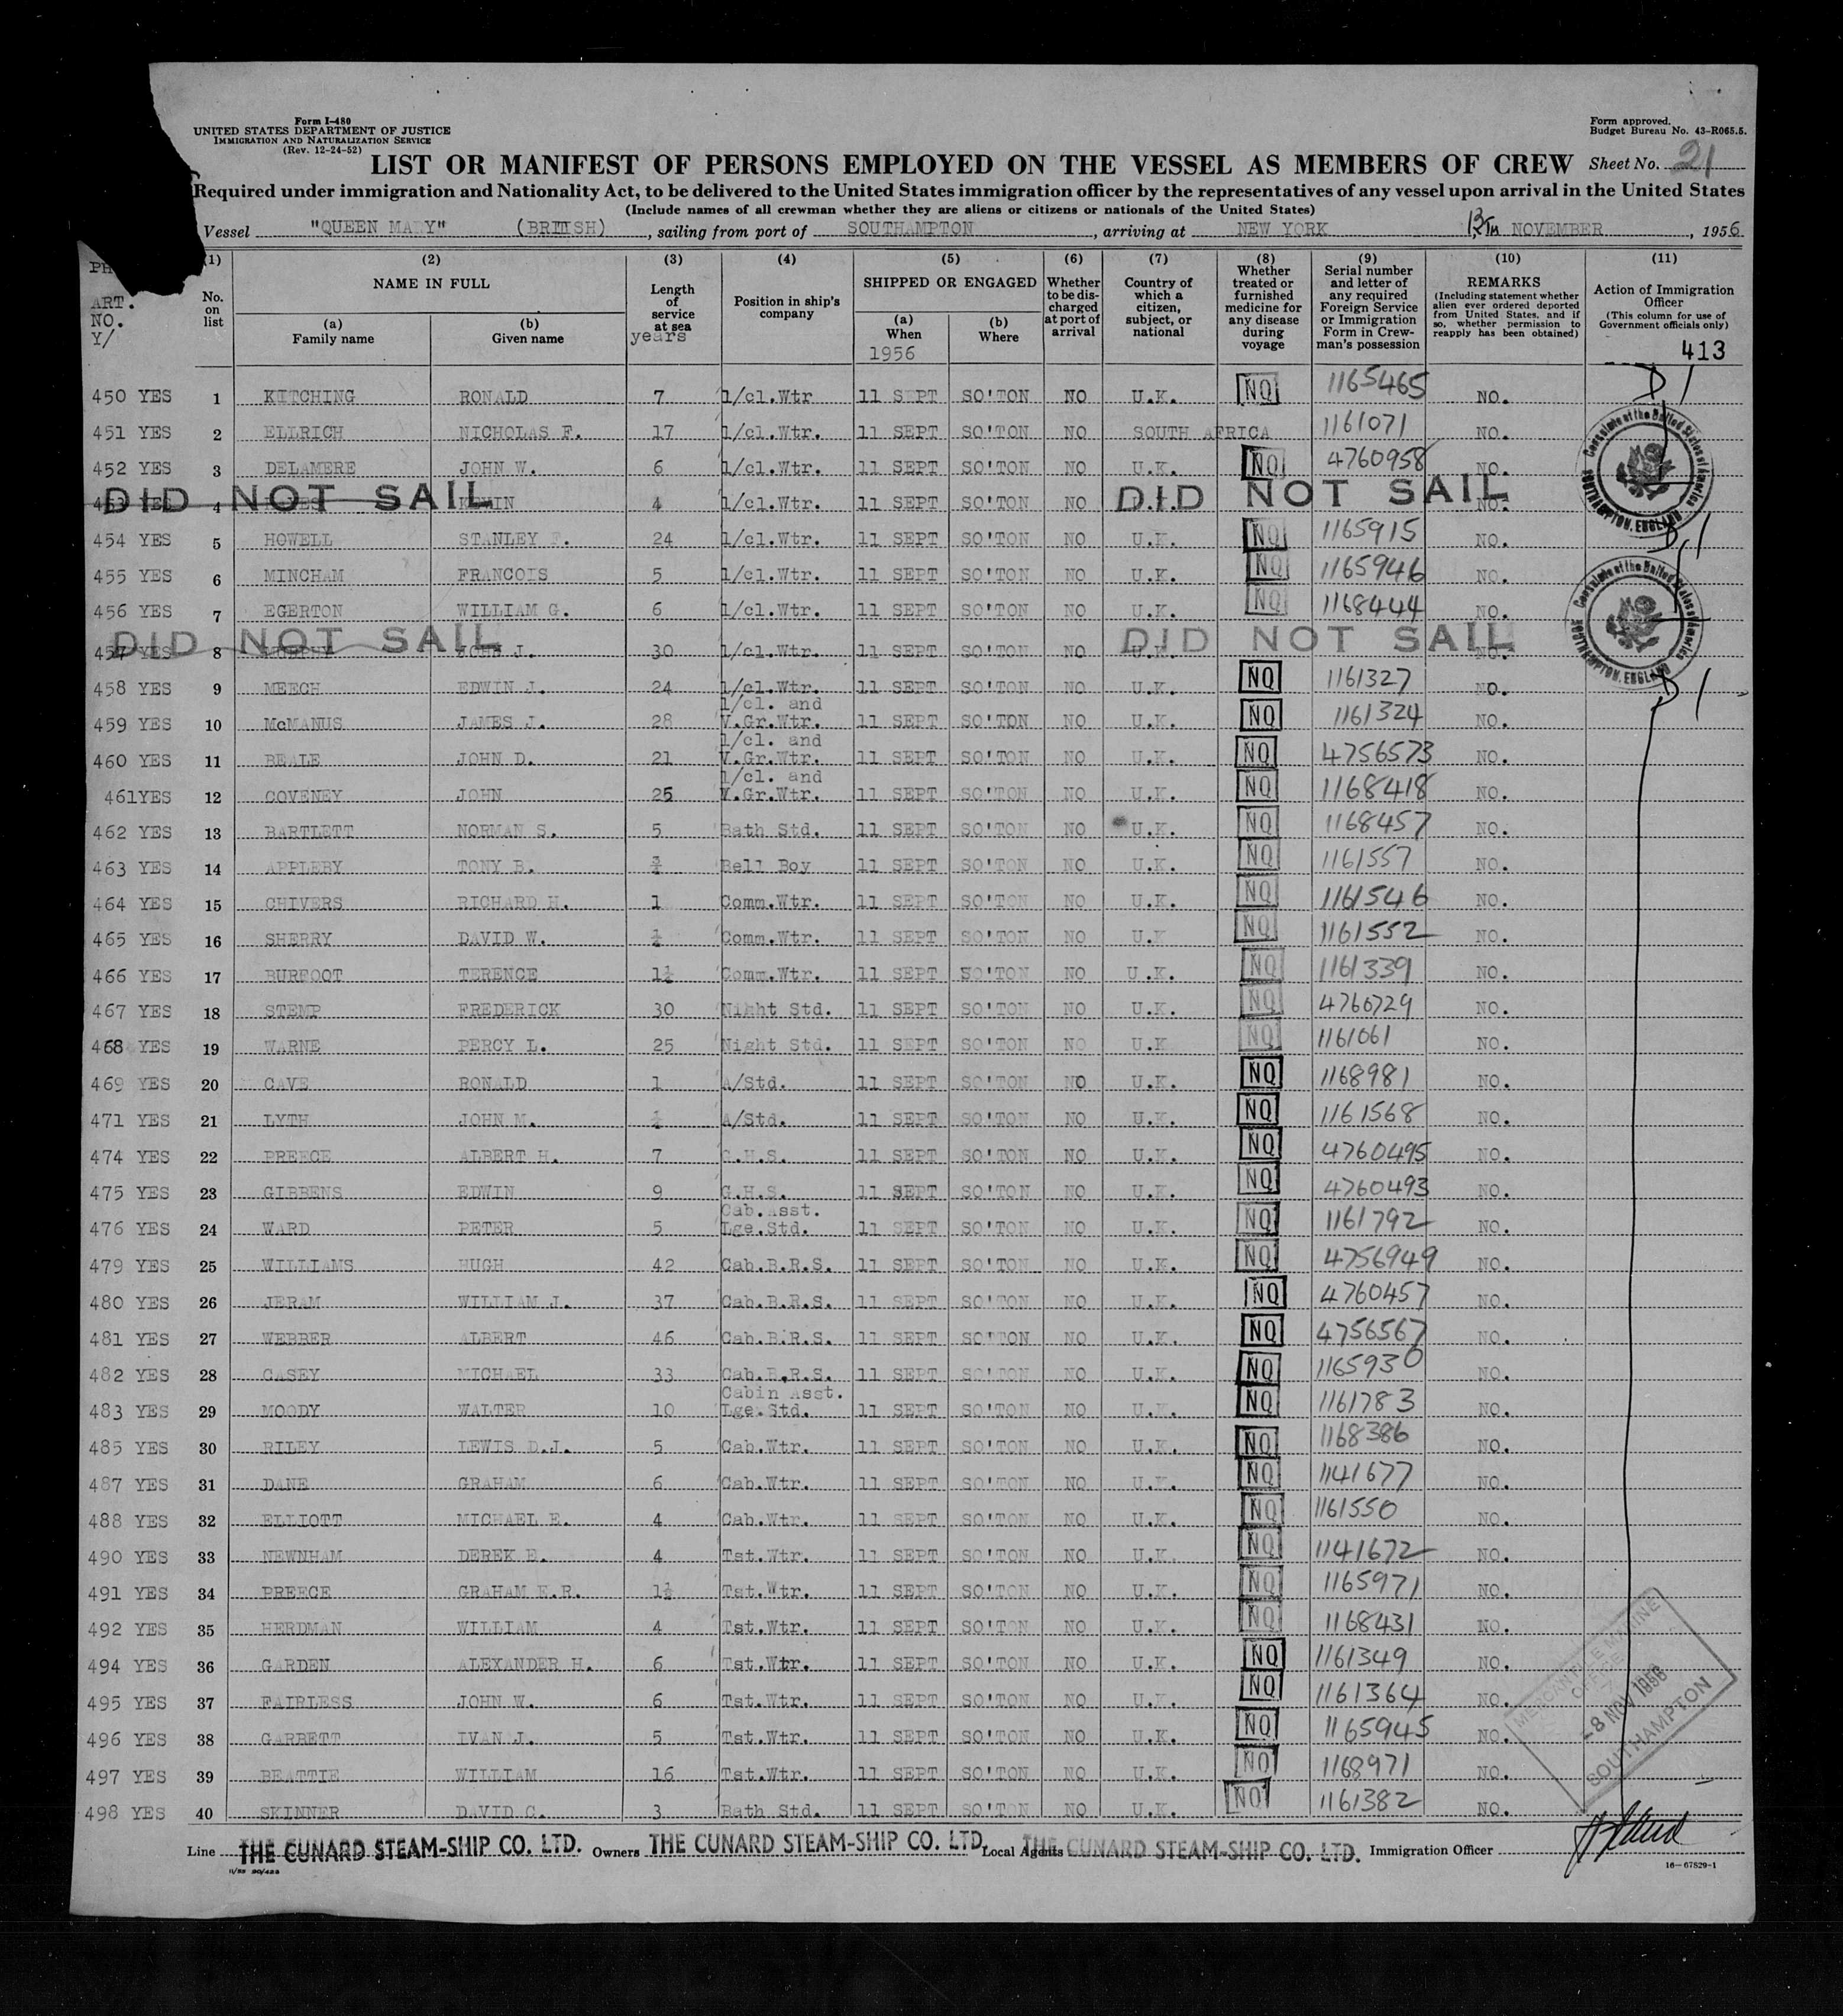 Form I-480
UNITED STATES DEPARTMENT OF JUSTICE
IMMIGRATION AND NATURALIZATION SERVICE
(Rev. 12-24-52)
Form approved.
Budget Bureau No. 43-R065.5.
LIST OR MANIFEST OF PERSONS EMPLOYED ON THE VESSEL AS MEMBERS OF CREW Sheet No. 21
Required under immigration and Nationality Act, to be delivered to the United States immigration officer by the representatives of any vessel upon arrival in the United States
(Include names of all crewman whether they are aliens or citizens or nationals of the United States)
Vessel "QUEEN MARY" (BRITISH), sailing from port of SOUTHAMPTON, arriving at NEW YORK 13TH NOVEMBER, 1956
ART. NO. Y/
(1) No. on list
(2) NAME IN FULL (a) Family name (b) Given name
(3) Length of service at sea years
(4) Position in ship's company
(5) SHIPPED OR ENGAGED (a) When 1956 (b) Where
(6) Whether to be discharged at port of arrival
(7) Country of which a citizen, subject, or national
(8) Whether treated or furnished medicine for any disease during voyage
(9) Serial number and letter of any required Foreign Service or Immigration Form in Crewman's possession
(10) REMARKS (Including statement whether alien ever ordered deported from United States, and if so, whether permission to reapply has been obtained)
(11) Action of Immigration Officer (This column for use of Government officials only)
413
450 YES 1 KITCHING RONALD 7 1/cl.Wtr 11 SEPT SO'TON NO U.K. NQ 1165465 NO. D1
451 YES 2 ELLRICH NICHOLAS F. 17 1/cl.Wtr. 11 SEPT SO'TON NO SOUTH AFRICA 1161071 NO.
452 YES 3 DELAMERE JOHN W. 6 1/cl.Wtr. 11 SEPT SO'TON NO U.K. NQ 4760958 NO.
453 YES 4 4 1/cl.Wtr. 11 SEPT SO'TON NO NO.
DID NOT SAIL DID NOT SAIL
454 YES 5 HOWELL STANLEY F. 24 1/cl.Wtr. 11 SEPT SO'TON NO U.K. NQ 1165915 NO. D1
455 YES 6 MINCHAM FRANCOIS 5 1/cl.Wtr. 11 SEPT SO'TON NO U.K. NQ 1165946 NO.
456 YES 7 EGERTON WILLIAM G. 6 1/cl.Wtr. 11 SEPT SO'TON NO U.K. NQ 1168444 NO.
457 YES 8 JOHN J. 30 1/cl.Wtr. 11 SEPT SO'TON NO U.K. NO.
DID NOT SAIL DID NOT SAIL
458 YES 9 MEECH EDWIN J. 24 1/cl.Wtr. 11 SEPT SO'TON NO U.K. NQ 1161327 NO. D1
459 YES 10 McMANUS JAMES J. 28 1/cl. and V.Gr.Wtr. 11 SEPT SO'TON NO U.K. NQ 1161324 NO.
460 YES 11 BEALE JOHN D. 21 1/cl. and V.Gr.Wtr. 11 SEPT SO'TON NO U.K. NQ 4756573 NO.
461YES 12 COVENEY JOHN 25 1/cl. and V.Gr.Wtr. 11 SEPT SO'TON NO U.K. NQ 1168418 NO.
462 YES 13 BARTLETT NORMAN S. 5 Bath Std. 11 SEPT SO'TON NO U.K. NQ 1168457 NO.
463 YES 14 APPLEBY TONY B. Bell Boy 11 SEPT SO'TON NO U.K. NQ 1161557 NO.
464 YES 15 CHIVERS RICHARD H. 1 Comm.Wtr. 11 SEPT SO'TON NO U.K. NQ 1161546 NO.
465 YES 16 SHERRY DAVID W. Comm.Wtr. 11 SEPT SO'TON NO U.K NQ 1161552 NO.
466 YES 17 BURFOOT TERENCE 1½ Comm.Wtr. 11 SEPT SO'TON NO U.K. NQ 1161339 NO.
467 YES 18 STEMP FREDERICK 30 Night Std. 11 SEPT SO'TON NO U.K. NQ 4760729 NO.
468 YES 19 WARNE PERCY L. 25 Night Std. 11 SEPT SO'TON NO U.K NQ 1161061 NO.
469 YES 20 CAVE RONALD 1 A/Std. 11 SEPT SO'TON NO U.K. NQ 1168981 NO.
471 YES 21 LYTH JOHN M. A/Std. 11 SEPT SO'TON NO U.K. NQ 1161568 NO.
474 YES 22 PREECE ALBERT H. 7 G.H.S. 11 SEPT SO'TON NO U.K. NQ 4760495 NO.
475 YES 23 GIBBENS EDWIN 9 G.H.S. 11 SEPT SO'TON NO U.K. NQ 4760493 NO.
476 YES 24 WARD PETER 5 Cab.Asst. Lge.Std. 11 SEPT SO'TON NO U.K. NQ 1161792 NO.
479 YES 25 WILLIAMS HUGH 42 Cab.B.R.S. 11 SEPT SO'TON NO U.K. NQ 4756949 NO.
480 YES 26 JERAM WILLIAM J. 37 Cab.B.R.S. 11 SEPT SO'TON NO U.K. NQ 4760457 NO.
481 YES 27 WEBBER ALBERT 46 Cab.B.R.S. 11 SEPT SO'TON NO U.K. NQ 4756567 NO.
482 YES 28 CASEY MICHAEL 33 Cab.B.R.S. 11 SEPT SO'TON NO U.K. NQ 1165930 NO.
483 YES 29 MOODY WALTER 10 Cabin Asst. Lge.Std. 11 SEPT SO'TON NO U.K. NQ 1161783 NO.
485 YES 30 RILEY LEWIS D.J. 5 Cab.Wtr. 11 SEPT SO'TON NO U.K. NQ 1168386 NO.
487 YES 31 DANE GRAHAM 6 Cab.Wtr. 11 SEPT SO'TON NO U.K. NQ 1141677 NO.
488 YES 32 ELLIOTT MICHAEL E. 4 Cab.Wtr. 11 SEPT SO'TON NO U.K. NQ 1161550 NO.
490 YES 33 NEWNHAM DEREK E. 4 Tst.Wtr. 11 SEPT SO'TON NO U.K. NQ 1141672 NO.
491 YES 34 PREECE GRAHAM E.R. 1½ Tst.Wtr. 11 SEPT SO'TON NO U.K. NQ 1165971 NO.
492 YES 35 HERDMAN WILLIAM 4 Tst.Wtr. 11 SEPT SO'TON NO U.K. NQ 1168431 NO.
494 YES 36 GARDEN ALEXANDER H. 6 Tst.Wtr. 11 SEPT SO'TON NO U.K. NQ 1161349 NO.
495 YES 37 FAIRLESS JOHN W. 6 Tst.Wtr. 11 SEPT SO'TON NO U.K. NQ 1161364 NO.
496 YES 38 GARBETT IVAN J. 5 Tst.Wtr. 11 SEPT SO'TON NO U.K. NQ 1165945 NO.
497 YES 39 BEATTIE WILLIAM 16 Tst.Wtr. 11 SEPT SO'TON NO U.K. NQ 1168971 NO.
498 YES 40 SKINNER DAVID C. 3 Bath Std. 11 SEPT SO'TON NO U.K. NQ 1161382 NO.
Consulate of the United States of America
SOUTHAMPTON, ENGLAND
Consulate of the United States of America
SOUTHAMPTON, ENGLAND
MERCANTILE MARINE OFFICE
-8 NOV 1956
SOUTHAMPTON
Line THE CUNARD STEAM-SHIP CO. LTD. Owners THE CUNARD STEAM-SHIP CO. LTD. Local Agents THE CUNARD STEAM-SHIP CO. LTD. Immigration Officer
16-67829-1